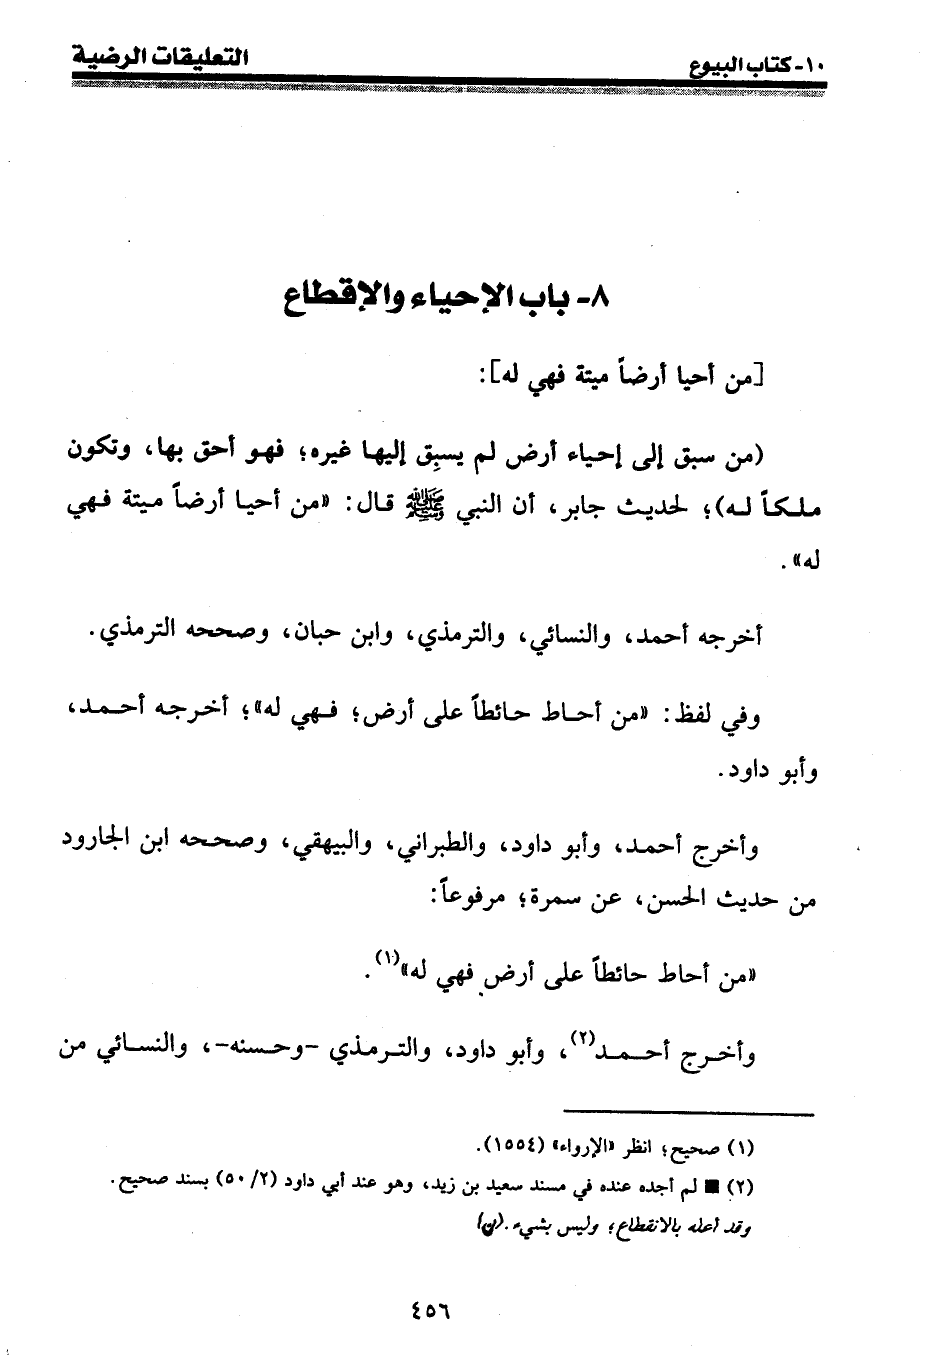 ١٠- كتاب البيوع
التعليقات الرضية
٨- باب الإحياء والإقطاع
[من أحيا أرضاً ميتة فهي له]:
(من سبق إلى إحياء أرض لم يسبِق إليها غيره؛ فهو أحق بها، وتكون
ملكاً له)؛ لحديث جابر، أن النبي ﷺ قال: «من أحيا أرضاً ميتة فهي
له».
أخرجه أحمد، والنسائي، والترمذي، وابن حبان، وصححه الترمذي.
وفي لفظ: «من أحاط حائطاً على أرض؛ فهي له»؛ أخرجه أحمد،
وأبو داود.
وأخرج أحمد، وأبو داود، والطبراني، والبيهقي، وصححه ابن الجارود
من حديث الحسن، عن سمرة؛ مرفوعاً:
«من أحاط حائطاً على أرض فهي له»(١).
وأخرج أحمد(٢)، وأبو داود، والترمذي -وحسنه-، والنسائي من
(١) صحيح؛ انظر «الإرواء» (١٥٥٤).
(٢) ■ لم أجده عنده في مسند سعيد بن زيد، وهو عند أبي داود (٢/ ٥٠) بسند صحيح.
وقد أعله بالانقطاع؛ وليس بشيء.(ن)
٤٥٦